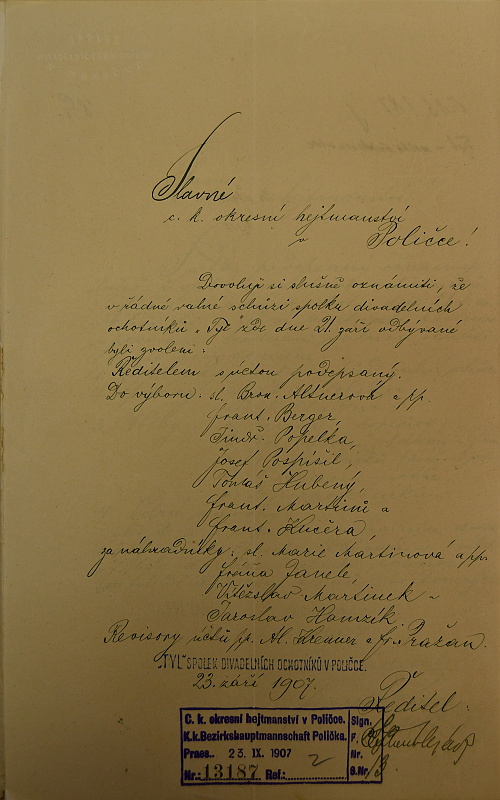 Slavné
c. k. okresní hejtmanství
v Poličce!
Dovoluji si slušně oznámiti, že
v řádné valné schůzi spolku divadelních
ochotníků „Tyl" zde dne 21. září odbývané
byli zvoleni:
Ředitelem s úctou podepsaný.
Do výboru: sl. Brož. Altnerová a pp.
Frant. Berger,
Jindř. Popelka,
Josef Pospíšil,
Tomáš Hubený,
Frant. Martinů a
Frant. Kučera,
za náhradníky: sl. Marie Martinová a pp.
Fráňa Janele,
Vítězslav Martinek a
Jaroslav Hamzík
Revisory účtů pp. Al. Krenner a Fr. Pražan.
„TYL" SPOLEK DIVADELNÍCH OCHOTNÍKŮ V POLIČCE.
23. září 1907.
Ředitel:
C. k. okresní hejtmanství v Poličce.
K.k. Bezirkshauptmannschaft Polička.
Praes.. 23. IX. 1907
Nr.: 13187 Ref.: 2
Sign.
F.
Nr.
S.Nr.